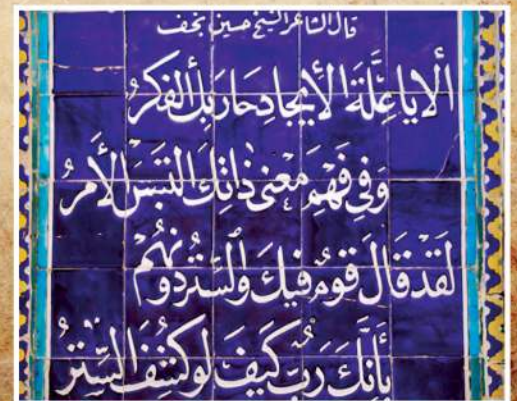 قال الشاعر الشيخ حسين نجف
ألا يا عِلَّةَ الأيجادِ حَارَ بِكَ الفِكْرُ
وَفِي فَهْمِ مَعْنى ذَاتِكَ التَبَسَ الأَمْرُ
لَقَدْ قَالَ قَوْمٌ فِيكَ وَالسِّتْرُ دُونَهُمْ
بِأَنَّكَ رَبٌّ كَيْفَ لَوْ كُشِفَ السِّتْرُ